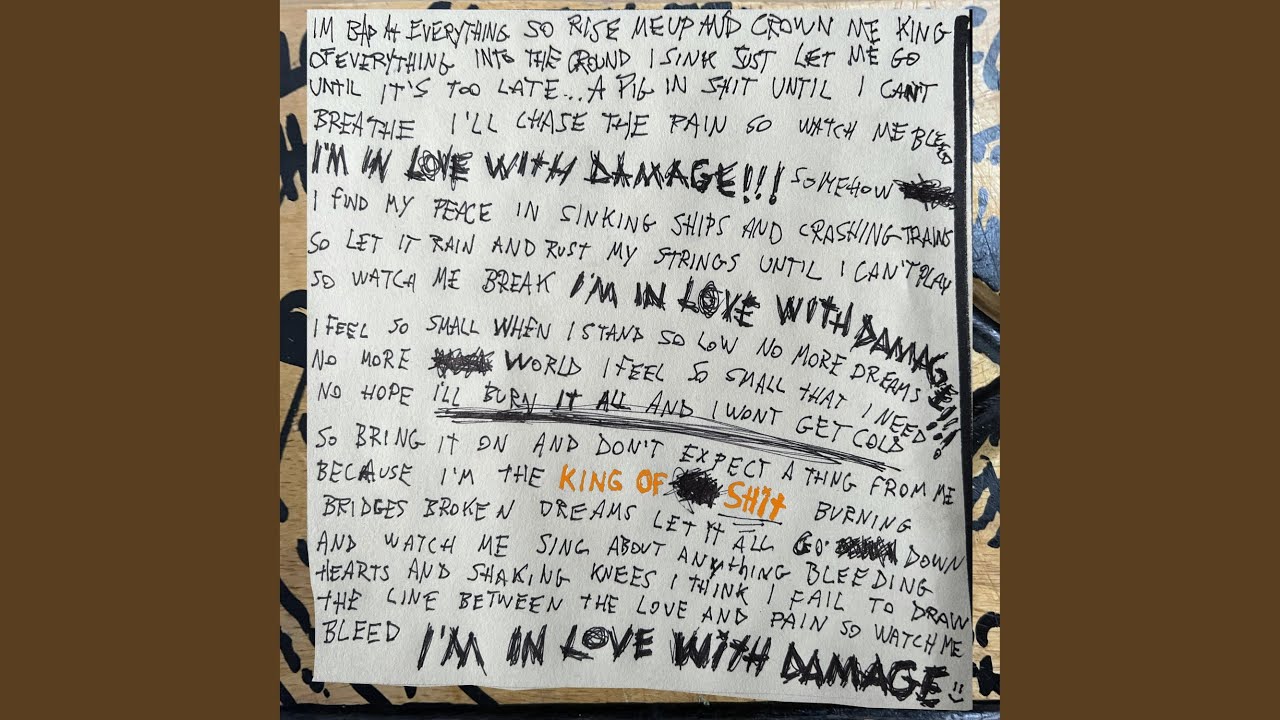 IM BAD At EVERYTHING SO RISE ME UP AND CROWN ME KING
OF EVERYTHING INTO THE GROUND I SINK JUST LET ME GO
UNTIL IT'S TOO LATE... A PIG IN SHIT UNTIL I CAN'T
BREATHE I'LL CHASE THE PAIN SO WATCH ME BLEED
I'M IN LOVE WITH DAMAGE!!! SOMEHOW
I FIND MY PEACE IN SINKING SHIPS AND CRASHING TRAINS
SO LET IT RAIN AND RUST MY STRINGS UNTIL I CAN'T PLAY
SO WATCH ME BREAK I'M IN LOVE WITH DAMAGE!!!
I FEEL SO SMALL WHEN I STAND SO LOW NO MORE DREAMS
NO MORE WORLD I FEEL SO SMALL THAT I NEED
NO HOPE I'LL BURN IT ALL AND I WONT GET COLD
SO BRING IT ON AND DON'T EXPECT A THING FROM ME
BECAUSE I'M THE KING OF SHIt BURNING
BRIDGES BROKEN DREAMS LET IT ALL GO DOWN
AND WATCH ME SING ABOUT ANYthING BLEEDING
HEARTS AND SHAKING KNEES I THINK I FAIL TO DRAW
THE LINE BETWEEN THE LOVE AND PAIN SO WATCH ME
BLEED I'M IN LOVE WITH DAMAGE!!